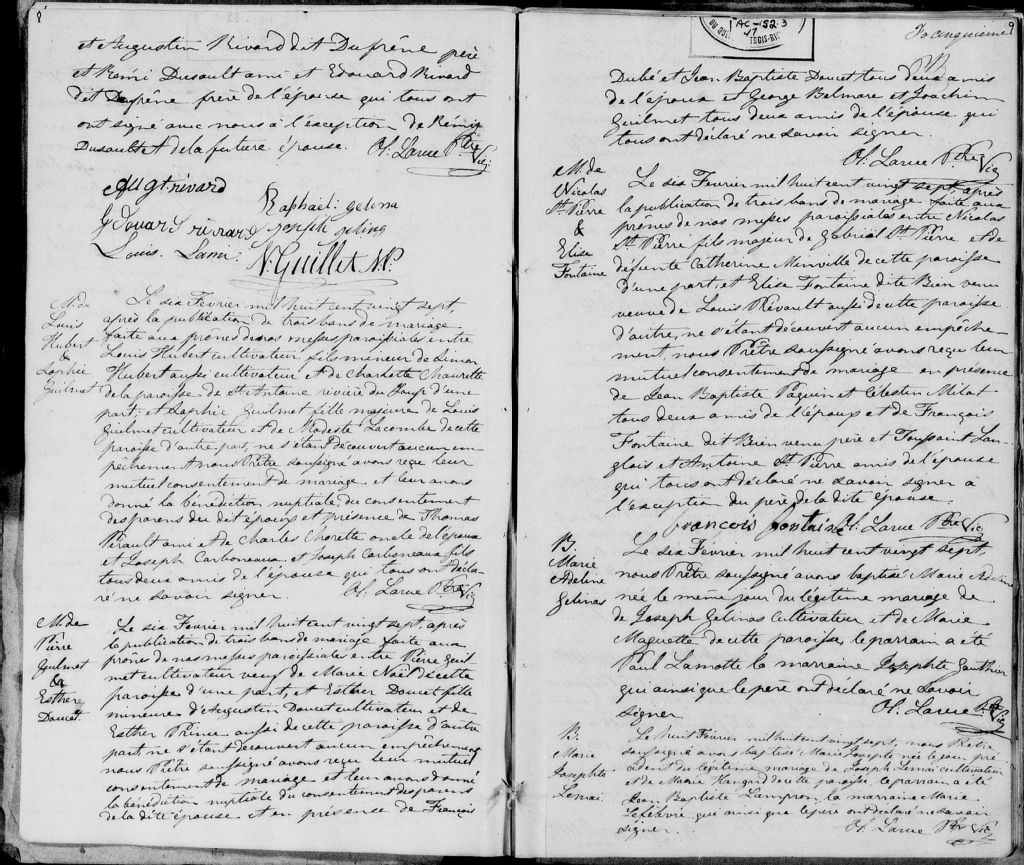 8
et Augustin Rivard dit Dufrêne père
et Remi Dusault ami et Edouard Rivard
dit Dufrêne frère de l'épouse qui tous ont
ont signé avec nous à l'exception de Rémy
Dusault et de la future épouse. O. Larue Ptre Vic
Augt rivard
Raphaël gelina
Edouard rivard joseph gelina
Louis Lami
N. Guillet N.P.
M. de
Louis
Hubert
&
Sophie
Guilmet
Le six Fevrier mil huit cent vingt sept,
après la publication de trois bans de mariage
faite aux prônes de nos messes paroissiales entre
Louis Hubert cultivateur, fils mineur de Simon
Hubert aussi cultivateur et de Charlotte Chaurette
de la paroisse de St Antoine rivière du Loup d'une
part, et Sophie Guilmet fille majeure de Louis
Guilmet cultivateur et de Modeste Lacombe de cette
paroisse d'autre part, ne s'étant découvert aucun em-
pêchement nous Prêtre soussigné avons reçu leur
mutuel consentement de mariage, et leur avons
donné la bénédiction nuptiale, du consentement
des parens du dit époux et présence de Thomas
Pérault ami et de Charles Chorette oncle de l'époux
et Joseph Carboneaux et Joseph Carboneaux fils
tous deux amis de l'épouse qui tous ont décla-
ré ne savoir signer. O. Larue Ptre Vic
M. de
Pierre
Guilmet
&
Esther
Doucet.
Le six Fevrier mil huit cent vingt sept, après
la publication de trois bans de mariage faite aux
prônes de nos messes paroissiales entre Pierre Guil
met cultivateur veuf de Marie Noël de cette
paroisse d'une part, et Esther Doucet fille
mineure d'Augustin Doucet cultivateur et de
Esther Prince aussi de cette paroisse d'autre
part, ne s'étant découvert aucun empêchement
nous Prêtre soussigné avons reçu leur mutuel
consentement de mariage et leur avons donné
la bénédiction nuptiale du consentement des parens
de la dite épouse et en présence de François
AC-152.3
17
9
Fo cinquième
Dubé et Jean Baptiste Doucet tous deux amis
de l'époux et George Belmare et Joachim
Guilmet tous deux amis de l'épouse qui
tous ont déclaré ne savoir signer.
O. Larue Ptre Vic
M. de
Nicolas
St Pierre
&
Elise
Fontaine
Le six Fevrier mil huit cent vingt sept, après
la publication de trois bans de mariage faite aux
prônes de nos messes paroissiales entre Nicolas
St Pierre fils majeur de Gabriel St Pierre et de
défunte Catherine Minville de cette paroisse
d'une part, et Elise Fontaine dite Bien venu
veuve de Louis Privault aussi de cette paroisse
d'autre, ne s'étant découvert aucun empêche-
ment, nous Prêtre soussigné avons reçu leur
mutuel consentement de mariage en présence
de Jean Baptiste Paquin et Célestin Milot
tous deux amis de l'époux et de François
Fontaine dit Bien venu père et Toussaint Lan-
glois et Antoine St Pierre amis de l'épouse
qui tous ont déclaré ne savoir signer à
l'exception du père de la dite épouse.
francois fontaine O. Larue Ptre Vic
B.
Marie
Adeline
Gelinas
Le six Février mil huit cent vingt sept,
nous Prêtre soussigné avons baptisé Marie Adeline
née le même jour du légitime mariage de
de Joseph Gelinas Cultivateur et de Marie
Maguette de cette paroisse, le parrain a été
Paul Lamotte la marraine Josephte Gauthier
qui ainsi que le père ont déclaré ne savoir
signer O. Larue Ptre Vic
B.
Marie
Josephte
Lemai
Le huit Fevrier mil huit cent vingt sept, nous Prêtre
soussigné avons baptisé Marie Josephte née le jour pré
cédent du légitime mariage de Joseph Lemai cultivateur
et de Marie de cette paroisse, le parrain a été
Jean Baptiste Lampron, la marraine Marie
Lefebvre, qui ainsi que le père ont déclaré ne savoir
signer. O. Larue Ptre Vic